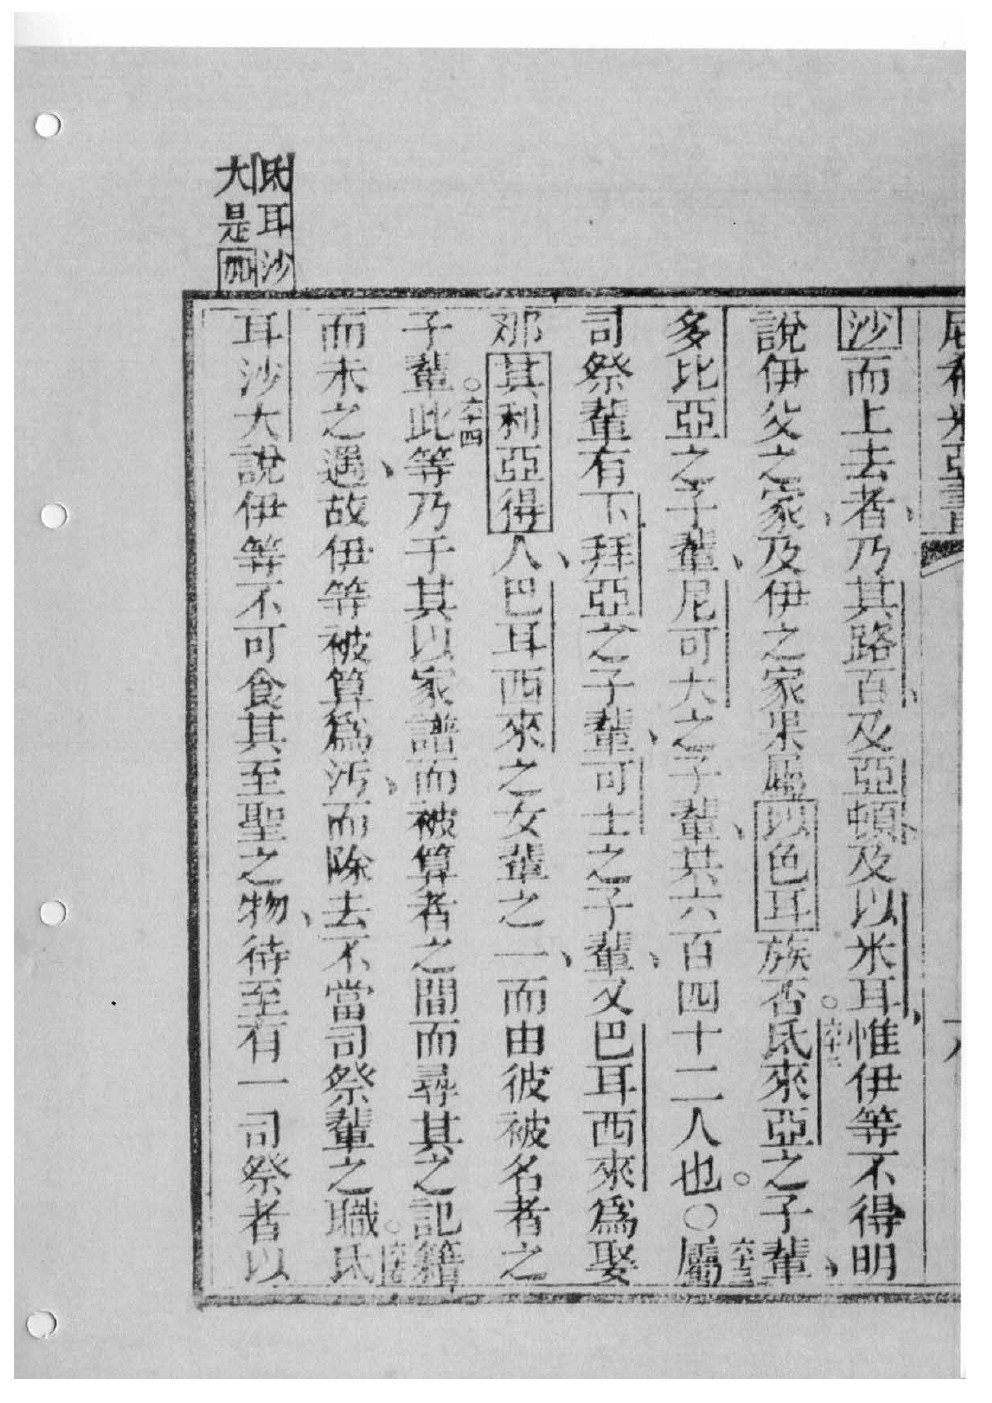 沙而上去者、乃其路百、及亞頓、及以米耳、惟伊等不得明
說伊父之家、及伊之家、果屬以色耳族否。六十二氐來亞之子輩、
多比亞之子輩、尼可大之子輩、共六百四十二人也。〇六十三屬
司祭輩有下拜亞之子輩、可士之子輩、又巴耳西來為娶
那其利亞得人、巴耳西來之女輩之一、而由彼被名者之
子輩。六十四此等乃于其以家譜而被算者之間而尋其之記籍
而未之遇、故伊等被算為汚、而除去不當司祭輩之職。氐
耳沙大說伊等不可食其至聖之物、待至有一司祭者以
氐耳沙
大是加